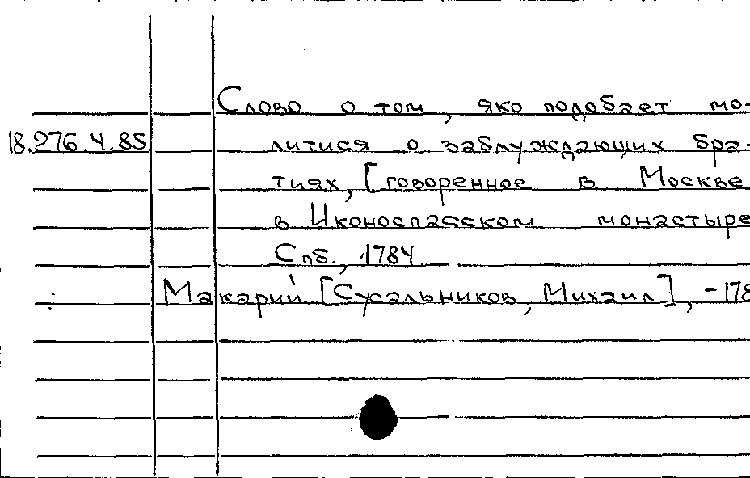 Слово о том, яко подобает мо-
18.276.4.85 литися о заблуждающих бра-
тиях, [говоренное в Москве
в Иконоспасском монастыре
Спб., 1784
Макарий [Сусальников, Михаил], -178